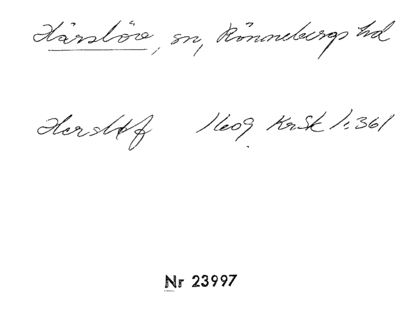 Härslöv, sn, Rönnebergs hd
Herslöf 1609 KrSk 1:361
Nr 23997